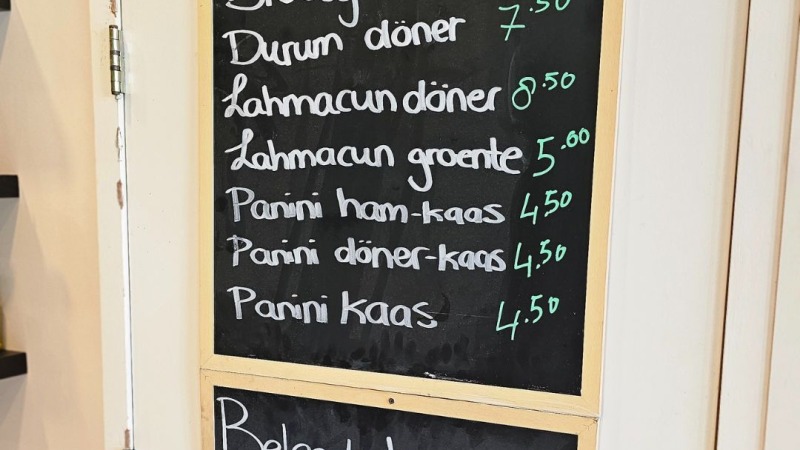 Durum döner 7.50
Lahmacun döner 8.50
Lahmacun groente 5.00
Panini ham-kaas 4.50
Panini döner-kaas 4.50
Panini kaas 4.50